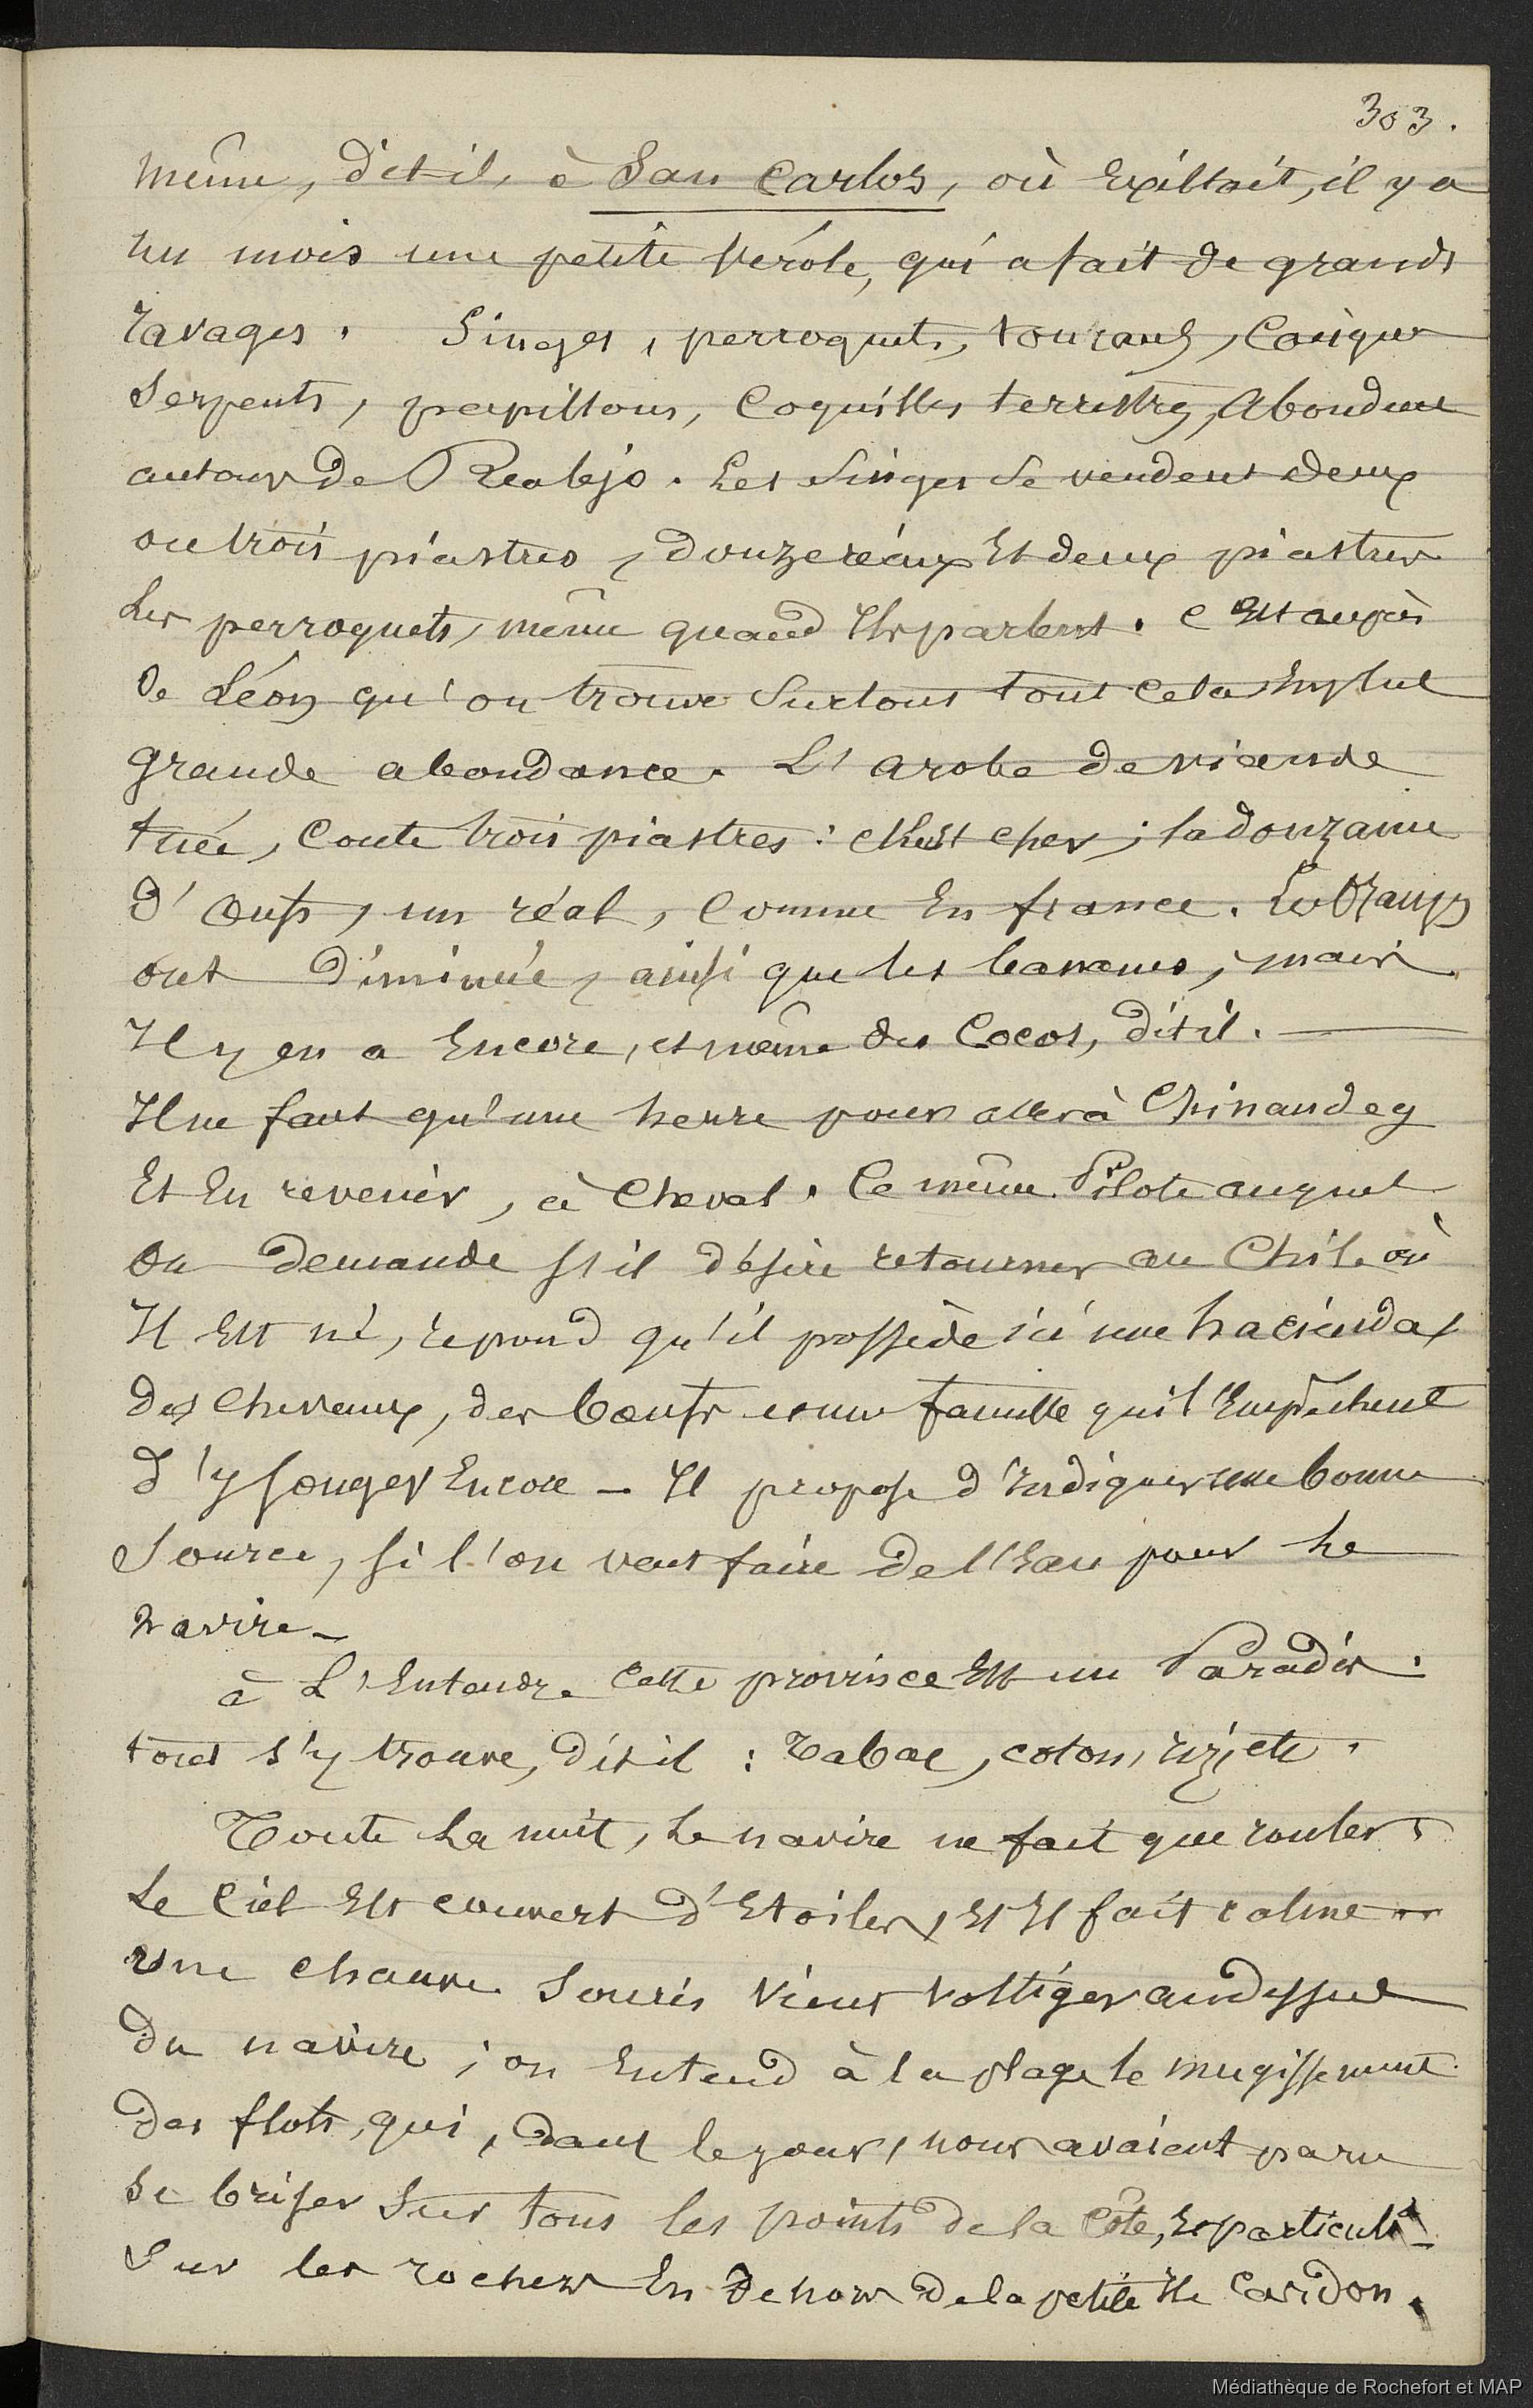 303.
même, dit-il, à San Carlos, où Existait, il y a
un mois une petite Vérole, qui a fait de grands
ravages. Singes, perroquets, toucans,
Serpents, papillons, Coquilles terrestres, Abondent
autour de Realejo. Les Singes se vendent deux
ou trois piastres, douze réaux Et deux piastres
les perroquets, même quand Ils parlent. C'Est auprès
de Léon qu'on trouve Surtout tout cela En plus
grande abondance. L'arobe de viande
tuée, Coute trois piastres : c'Est cher ; la douzaine
d'Oeufs, un réal, Comme En france. Les
ont diminué, ainsi que les bananes, mais
Il y en a Encore, et même des Cocos, dit il.
Il ne faut qu'une heure pour aller à Chinandeg
Et En revenir, à Cheval. Ce même Pilote auquel
On demande s'il désire retourner au Chili où
Il Est né, répond qu'il possède ici une hacienda,
des Chevaux, des boeufs et une famille qui l'Empêchent
d'y songer Encore — Il propose d'Indiquer une bonne
Source, si l'on veut faire de l'Eau pour le
navire —
à L'Entendre Cette province Est un Paradis.
tout s'y trouve, dit il : Tabac, coton, riz, etc.
Toute La nuit, Le navire ne fait que rouler,
Le Ciel Est couvert d'Etoiles, Et Il fait calme
une chauve Souris Vient Voltiger au dessus
du navire ; on Entend à la plage le mugissement
des flots, qui, dans le jour, nous avaient paru
se briser Sur tous les points de la Côte, Et particult
Sur les rochers En dehors de la petite Ile Cardon.
Médiathèque de Rochefort et MAP